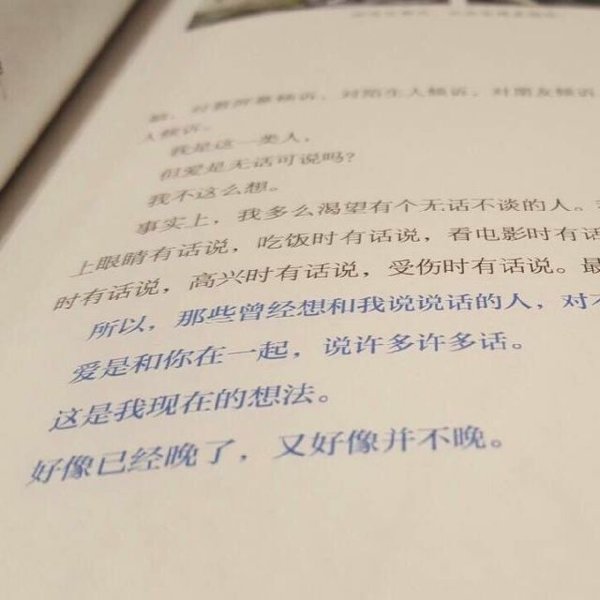 对着屏幕倾诉，对陌生人倾诉，对朋友倾诉
人倾诉。
我是这一类人，
但爱是无话可说吗？
我不这么想。
事实上，我多么渴望有个无话不谈的人。
上眼睛有话说，吃饭时有话说，看电影时有话
时有话说，高兴时有话说，受伤时有话说。最
所以，那些曾经想和我说说话的人，对不
爱是和你在一起，说许多许多话。
这是我现在的想法。
好像已经晚了，又好像并不晚。